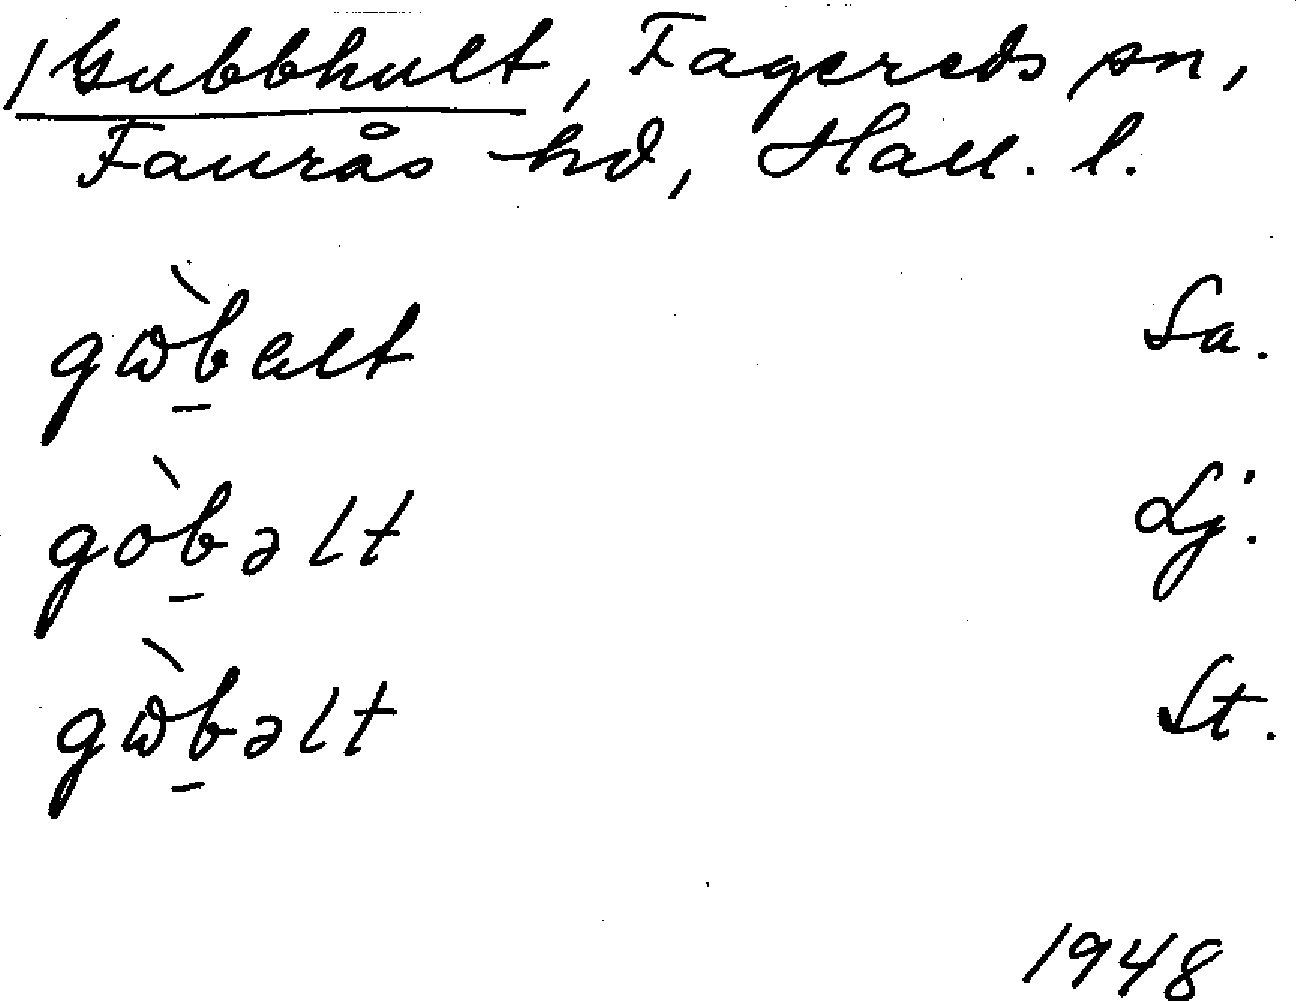 /Gubbhult, Fagereds sn,
Faurås hd, Hall. l.
gɷ̀b̲alt Sa.
gòb̲əlt Lj.
gɷ̀b̲əlt St.
1948